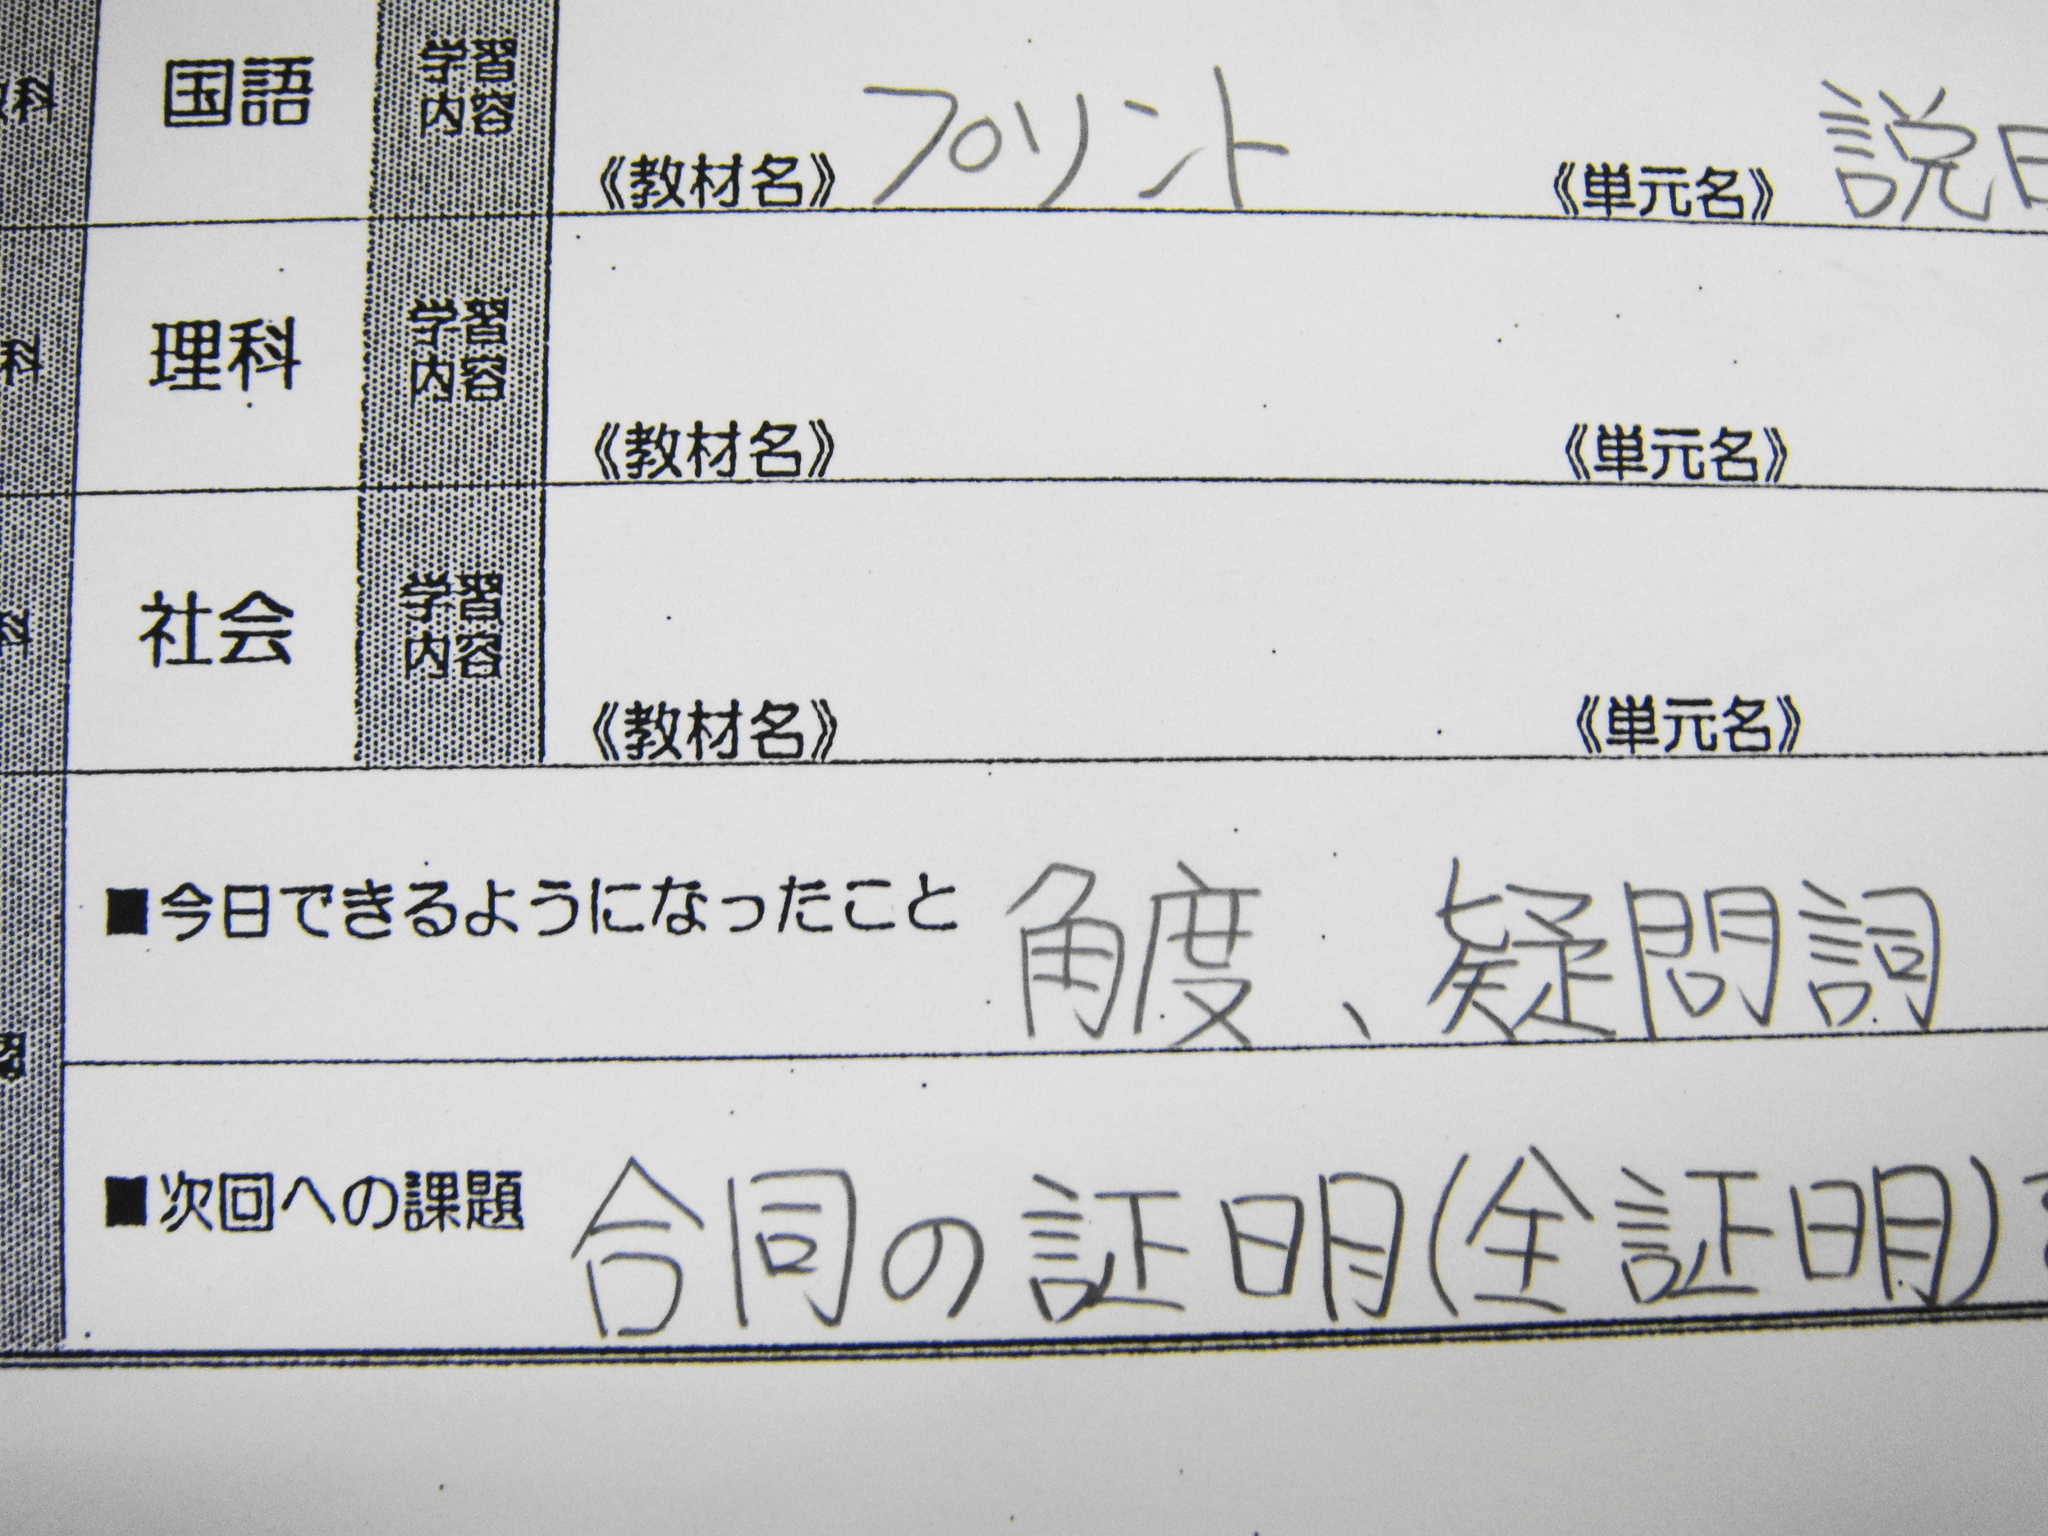 科 国語 学習内容 《教材名》 プリント 《単元名》 説
科 理科 学習内容 《教材名》 《単元名》
科 社会 学習内容 《教材名》 《単元名》
■今日できるようになったこと 角度、疑問詞
■次回への課題 合同の証明(全証明)